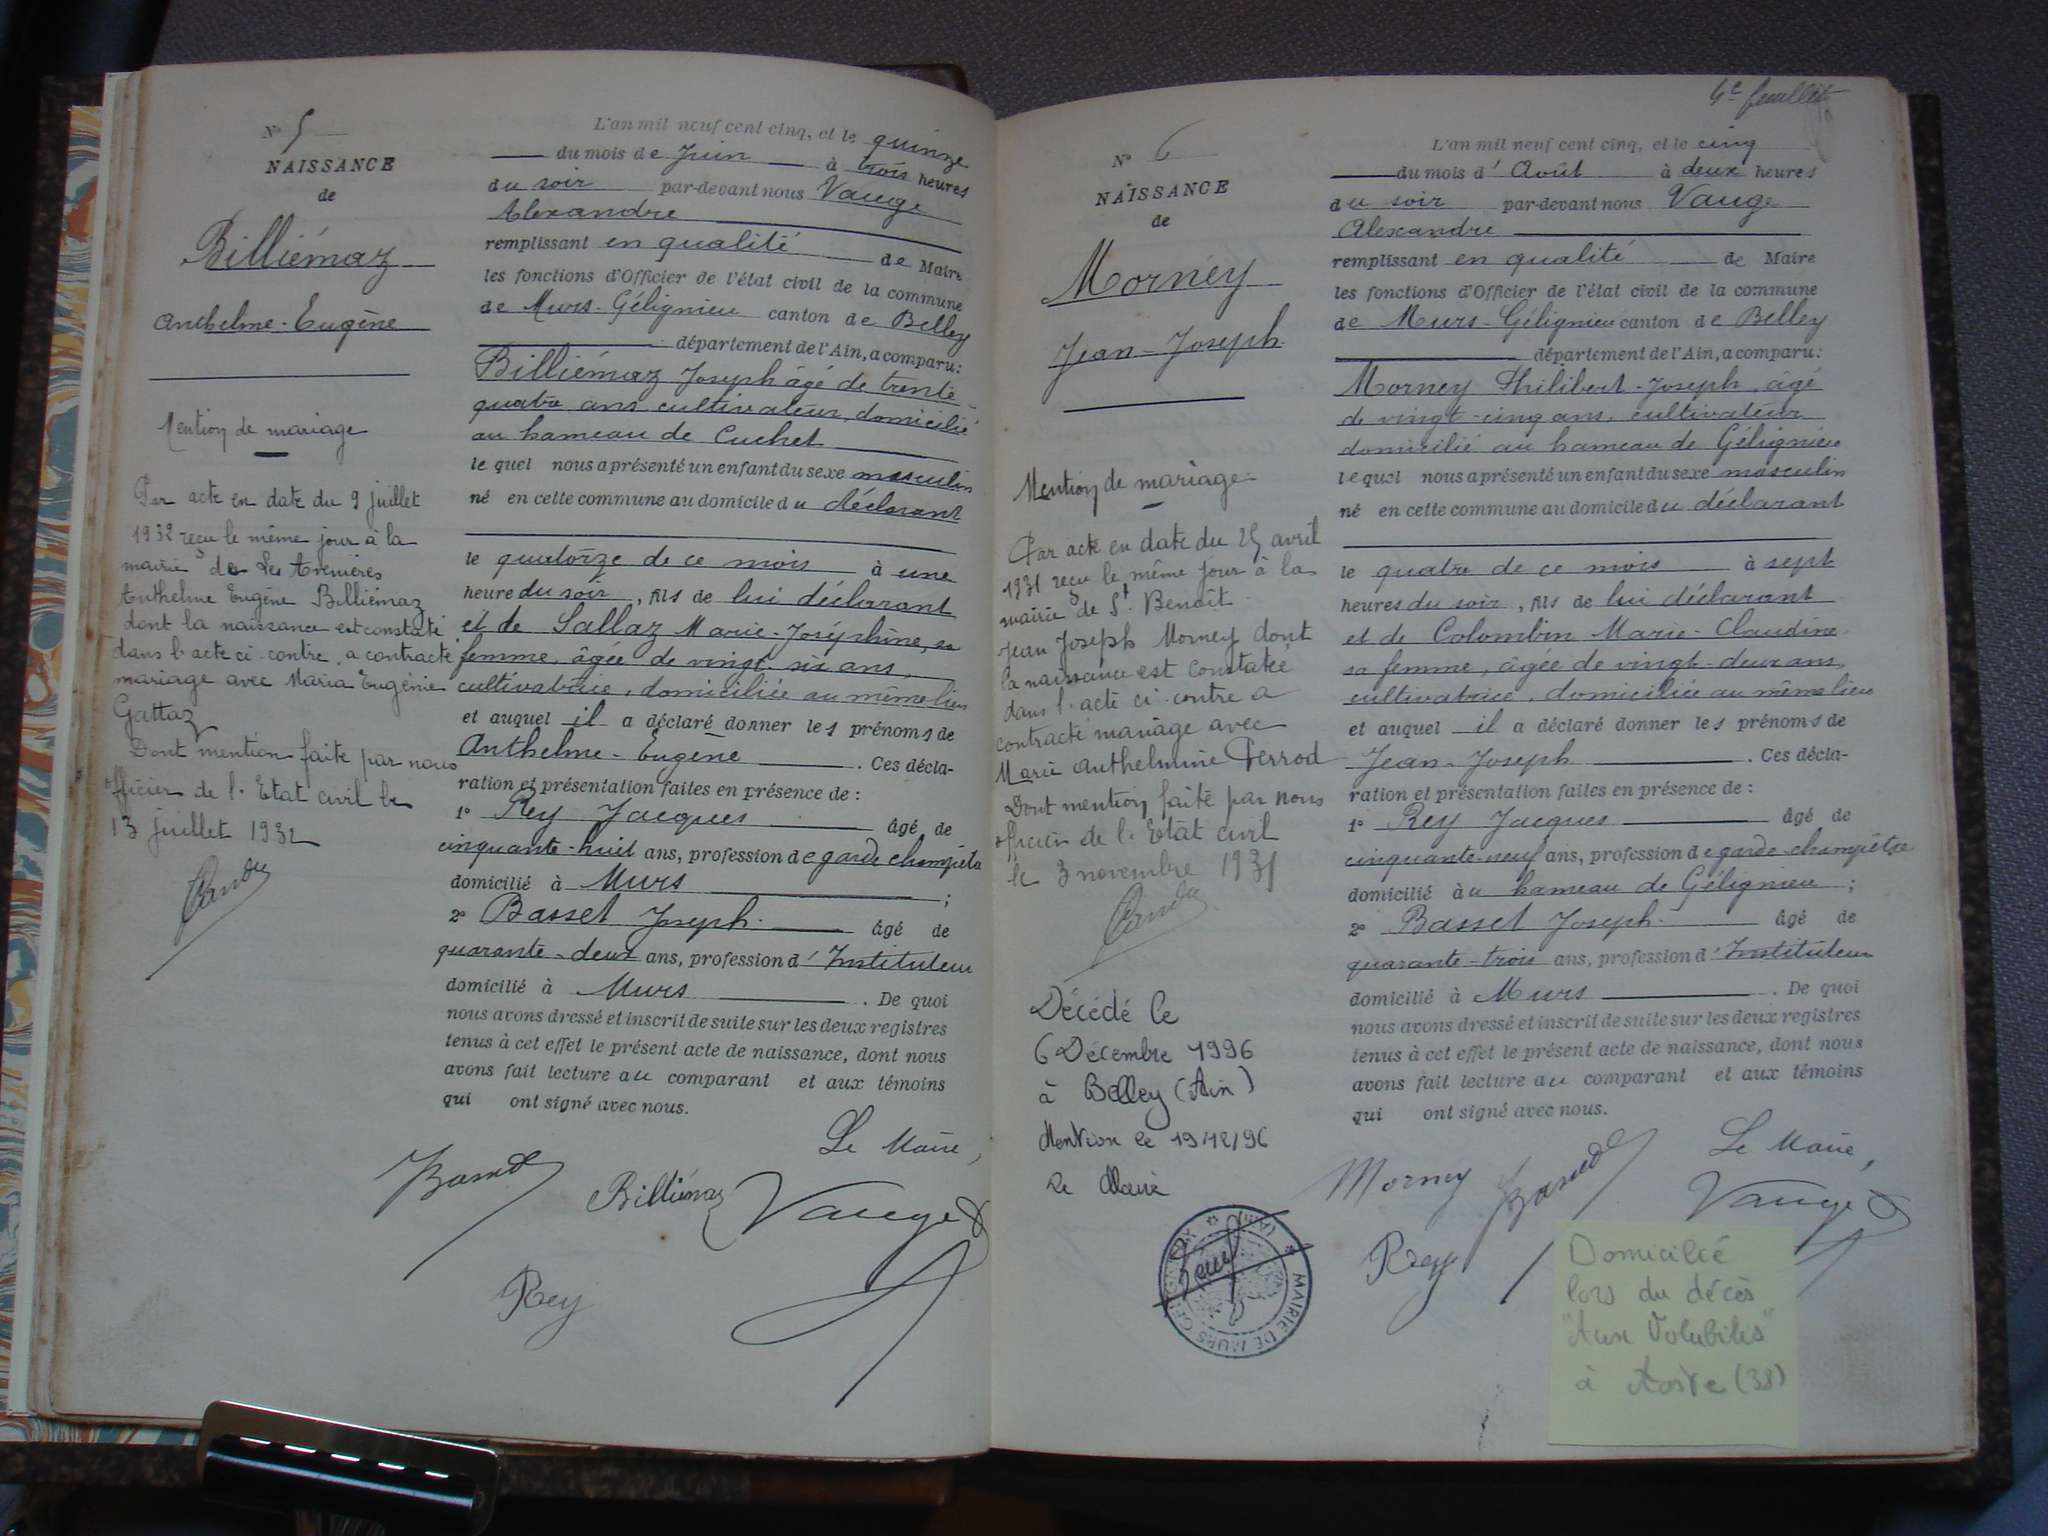 N° 5
NAISSANCE
de
Billiémaz
Anthelme-Eugène
Mention de mariage
Par acte en date du 9 juillet
1932 reçu le même jour à la
mairie de Les Avenières
Anthelme Eugène Billiémaz
dont la naissance est constaté
dans l'acte ci-contre, a contracté
mariage avec Maria Eugénie
Gattaz
Dont mention faite par nous
officier de l'Etat civil le
13 juillet 1932
L'an mil neuf cent cinq, et le quinze
du mois de Juin à trois heures
du soir par-devant nous Vauge
Alexandre
remplissant en qualité de Maire
les fonctions d'Officier de l'état civil de la commune
de Murs-Gélignieu canton de Belley
département de l'Ain, a comparu:
Billiémaz Joseph âgé de trente-
quatre ans cultivateur, domicilié
au hameau de Cuchet
lequel nous a présenté un enfant du sexe masculin
né en cette commune au domicile du déclarant
le quatorze de ce mois à une
heure du soir, fils de lui déclarant
et de Sallaz Marie-Joséphine, sa
femme, âgée de vingt-six ans,
cultivatrice, domiciliée au même lieu
et auquel il a déclaré donner les prénoms de
Anthelme-Eugène. Ces décla-
ration et présentation faites en présence de:
1° Rey Jacques âgé de
cinquante-huit ans, profession de garde champêtre
domicilié à Murs;
2° Basset Joseph. âgé de
quarante-deux ans, profession d'Instituteur
domicilié à Murs. De quoi
nous avons dressé et inscrit de suite sur les deux registres
tenus à cet effet le présent acte de naissance, dont nous
avons fait lecture au comparant et aux témoins
qui ont signé avec nous.
Le Maire,
Basset Billiémaz Vauge
Rey
4e feuillet
N° 6
NAISSANCE
de
Morney
Jean-Joseph
Mention de mariage
Par acte en date du 25 avril
1931 reçu le même jour à la
mairie de St. Benoît
Jean Joseph Morney dont
la naissance est constatée
dans l'acte ci-contre a
contracté mariage avec
Marie Anthelmine Perrod
Dont mention faite par nous
officier de l'Etat civil
le 3 novembre 1931
Décédé le
6 Décembre 1996
à Belley (Ain)
Mention le 19/12/96
Le Maire
MAIRIE DE MURS GELIGNIEUX (Ain)
L'an mil neuf cent cinq, et le cinq
du mois d'Août à deux heures
du soir par-devant nous Vauge
Alexandre
remplissant en qualité de Maire
les fonctions d'Officier de l'état civil de la commune
de Murs-Gélignieu canton de Belley
département de l'Ain, a comparu:
Morney Philibert-Joseph, âgé
de vingt-cinq ans, cultivateur
domicilié au hameau de Gélignieu
lequel nous a présenté un enfant du sexe masculin
né en cette commune au domicile du déclarant
le quatre de ce mois à sept
heures du soir, fils de lui déclarant
et de Colombin Marie-Claudine
sa femme, âgée de vingt-deux ans,
cultivatrice, domiciliée au même lieu
et auquel il a déclaré donner les prénoms de
Jean-Joseph. Ces décla-
ration et présentation faites en présence de:
1° Rey Jacques âgé de
cinquante-neuf ans, profession de garde-champêtre
domicilié au hameau de Gélignieu;
2° Basset Joseph. âgé de
quarante-trois ans, profession d'Instituteur
domicilié à Murs. De quoi
nous avons dressé et inscrit de suite sur les deux registres
tenus à cet effet le présent acte de naissance, dont nous
avons fait lecture au comparant et aux témoins
qui ont signé avec nous.
Le Maire,
Morney Basset Vauge
Rey
Domicilié
lors du décès
"Aux Volubilis"
à Aoste (38)